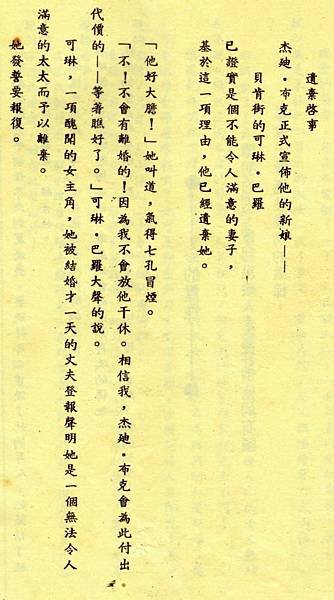 遺棄啓事
杰迪・布克正式宣佈他的新娘——
貝肯街的可琳・巴羅
已證實是個不能令人滿意的妻子，
基於這一項理由，他已經遺棄她。
「他好大膽！」她叫道，氣得七孔冒煙。
「不！不會有離婚的！因為我不會放他干休。相信我，杰迪・布克會為此付出
代價的——等著瞧好了。」可琳・巴羅大聲的說。
可琳，一項醜聞的女主角，她被結婚才一天的丈夫登報聲明她是一個無法令人
滿意的太太而予以離棄。
她發誓要報復。